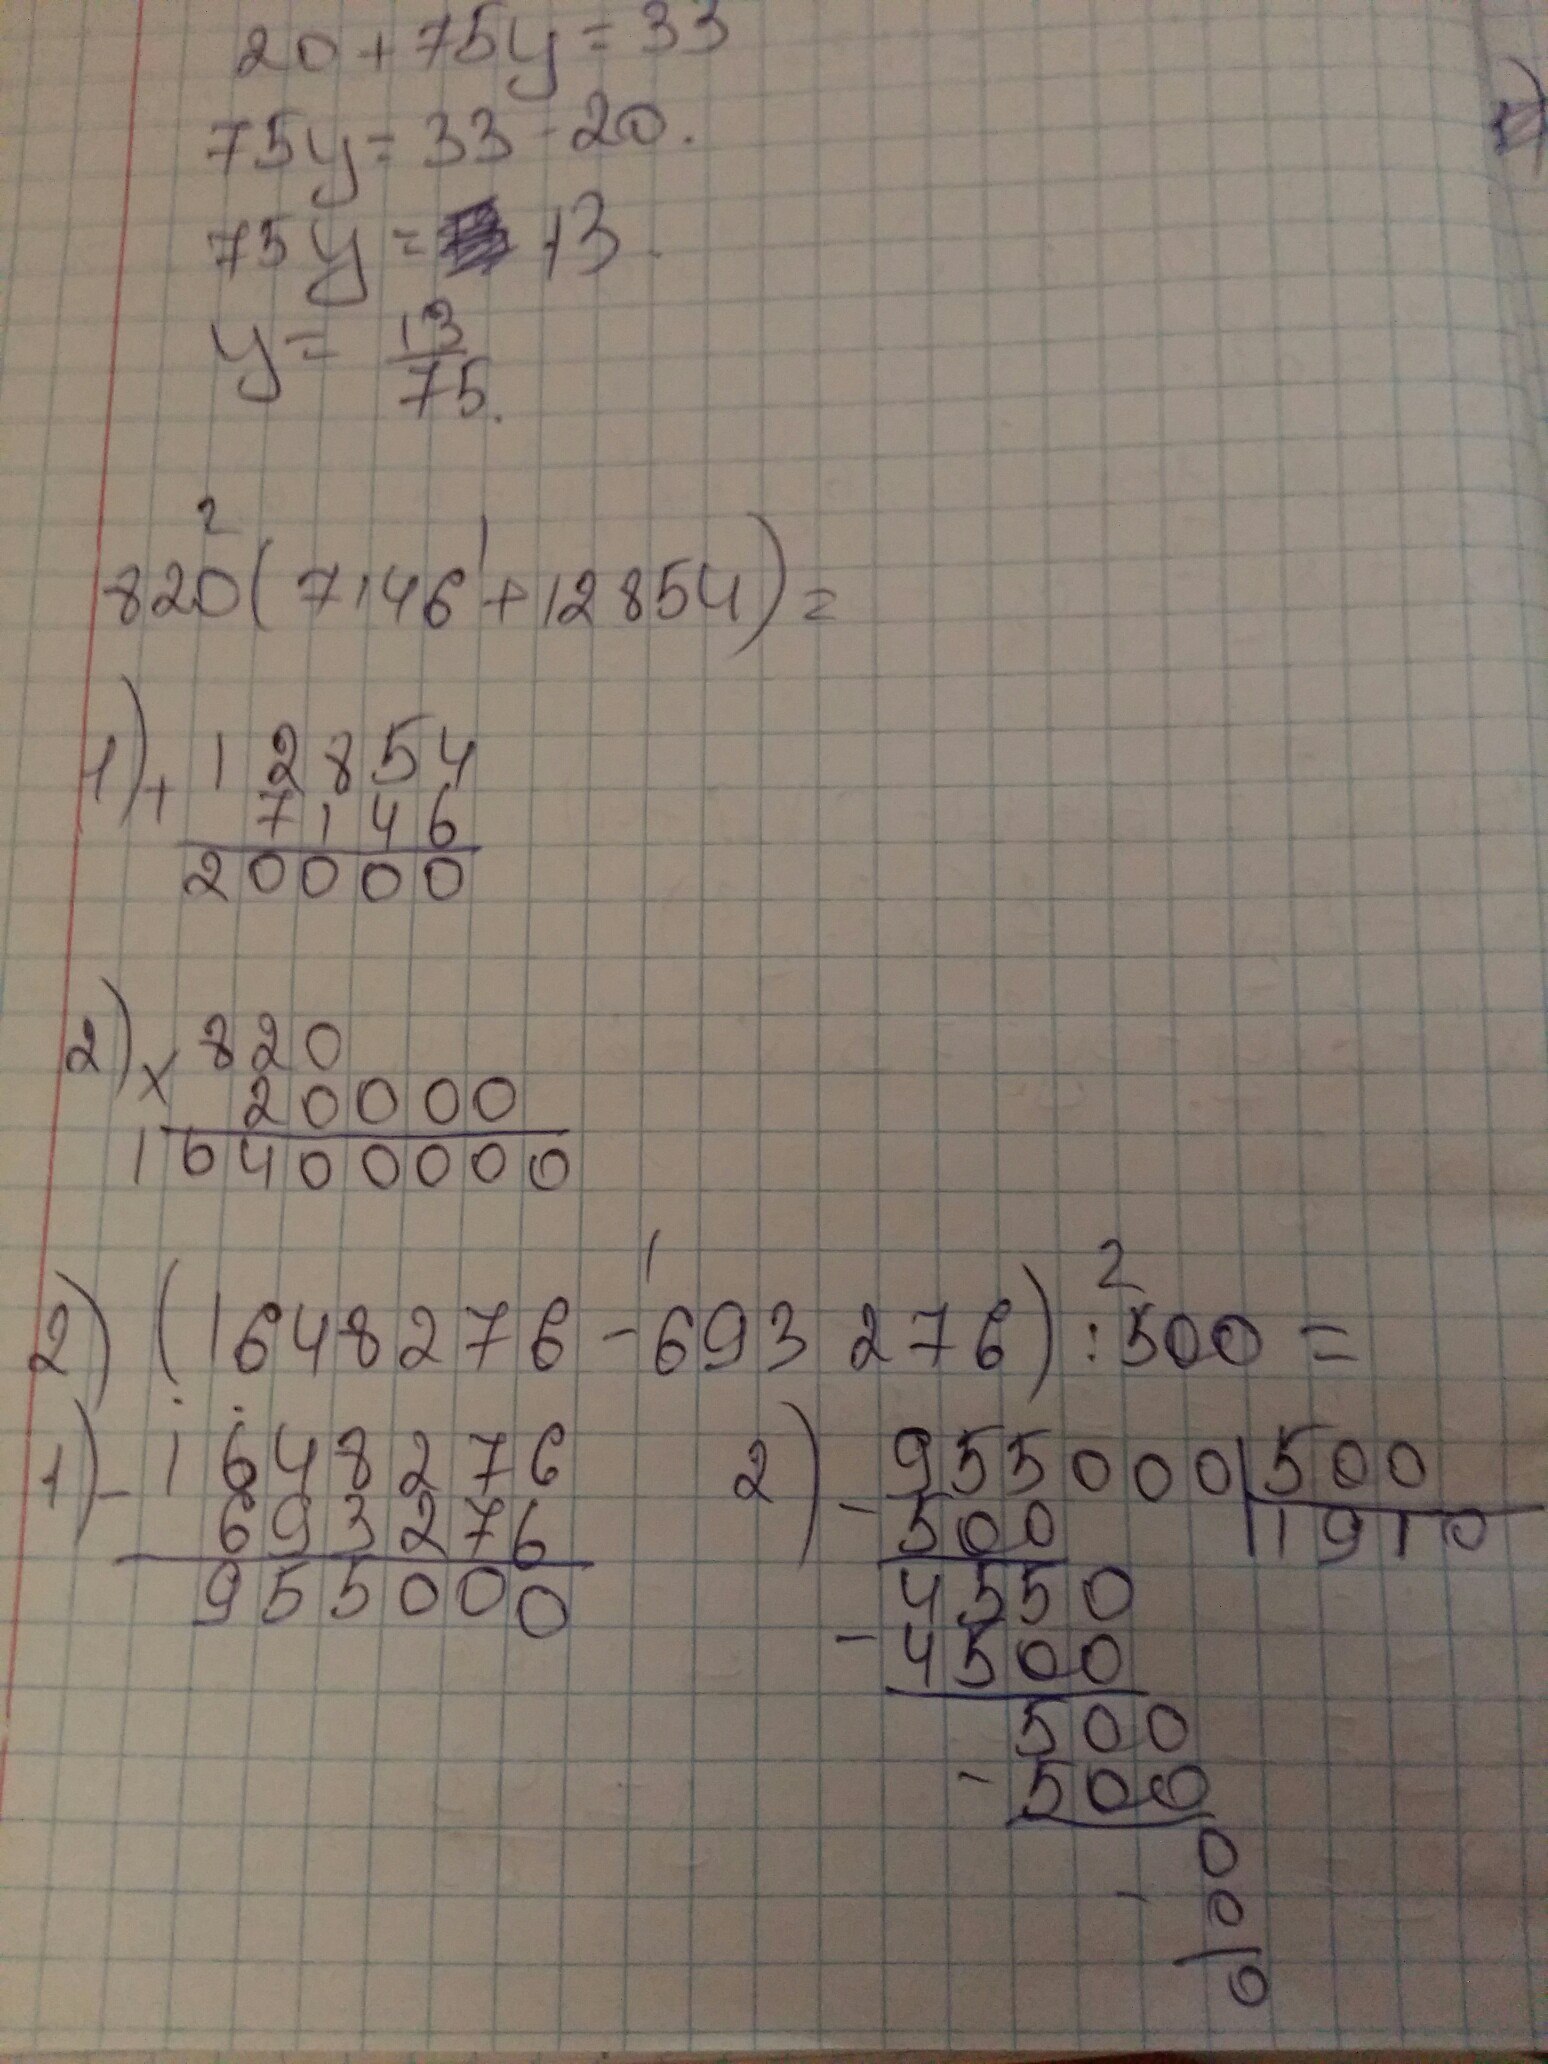 20+75y=33
75y=33-20.
75y= 13.
y= 13/75.
2 1
820(7146+12854)=
1) + 12854
7146
20000
2) x 820
20000
16400000
1 2
2) (1648276-693276):500=
1) - 1648276
693276
955000
2) - 955000 | 500
500 | 1910
4550
- 4500
500
- 500
0
- 0
0